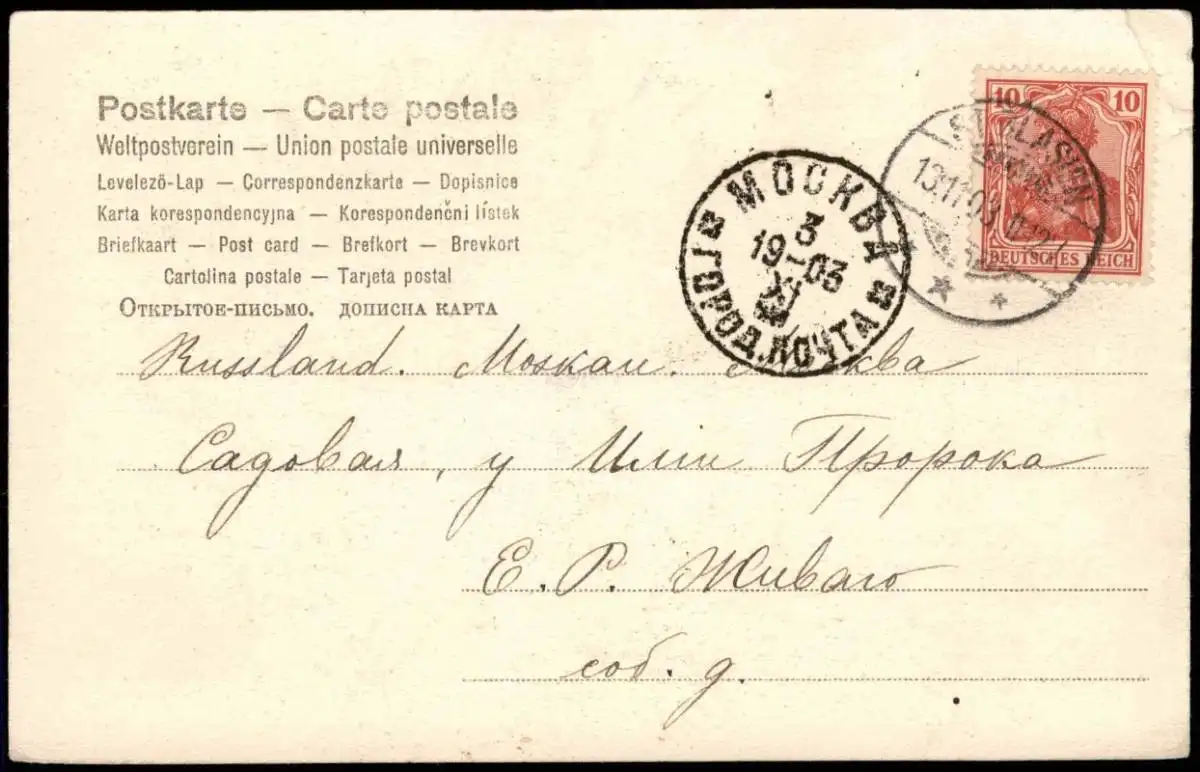 Postkarte — Carte postale
Weltpostverein — Union postale universelle
Levelező-Lap — Correspondenzkarte — Dopisnice
Karta korespondencyjna — Korespondenční lístek
Briefkaart — Post card — Brefkort — Brevkort
Cartolina postale — Tarjeta postal
Открытое-письмо. дописна карта
10 10
DEUTSCHES REICH
ST. BLASIEN
13.11.03.
МОСКВА
3
19-03
XI
ГОРОД. ПОЧТА
Russland. Moskau. Москва
Садовая, у Илiи Пророка
Е. Р. Живаго
соб. д.